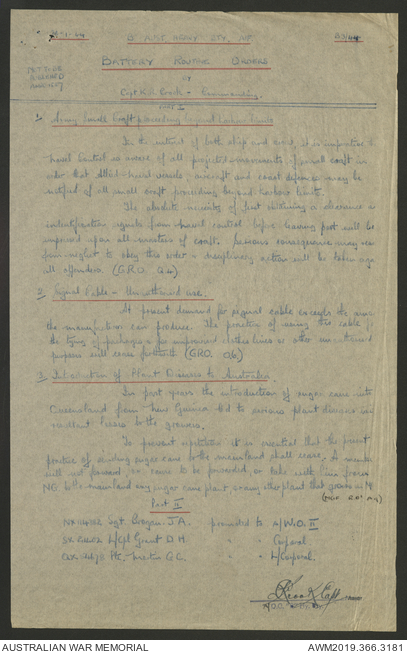 "B" AUST. HEAVY BTY. A.I.F.
BATTERY ROUTINE ORDERS
BY
Commanding.
PART I
1. Army Small Craft proceeding beyond Harbour Limits
In the interest of both ship and coast, it is imperative
Naval Control is aware of all projected movements of small craft in
order that Allied Naval vessels, aircraft and coast defences may be
notified of all small craft proceeding beyond harbour limits.
The absolute necessity of first obtaining a clearance &
indentification signals from Naval control before leaving port will be
impressed upon all coxswains of craft. Serious consequences may
from neglect to obey this order & disciplinary action will be taken
all offenders (G.R.O.
2. Signal Cable - Unauthorised use.
At present demand for signal cable exceeds the
the manufacturers can produce. The practice of using this cable
the tying of packages & for improvised clothes lines or other unauthorised
purposes will cease forthwith (GRO.
3. Introduction of Plant Diseases to Australia
In past years the introduction of sugar cane into
Queensland from New Guinea led to serious plant diseases
resultant losses to the growers.
To prevent repetition it is essential that the present
practice of sending sugar cane to the mainland shall cease. A member
will not forward or cause to be forwarded or take with him from
NG to the mainland any sugar cane plant or any other plant that grows in
Part II
Sgt. Brogan J.A. promoted to A/W.O. II
L/Cpl Grant D.H. " " Corporal
Pte. G.C. " " L/Corporal.
AUSTRALIAN WAR MEMORIAL
AWM2019.366.3181